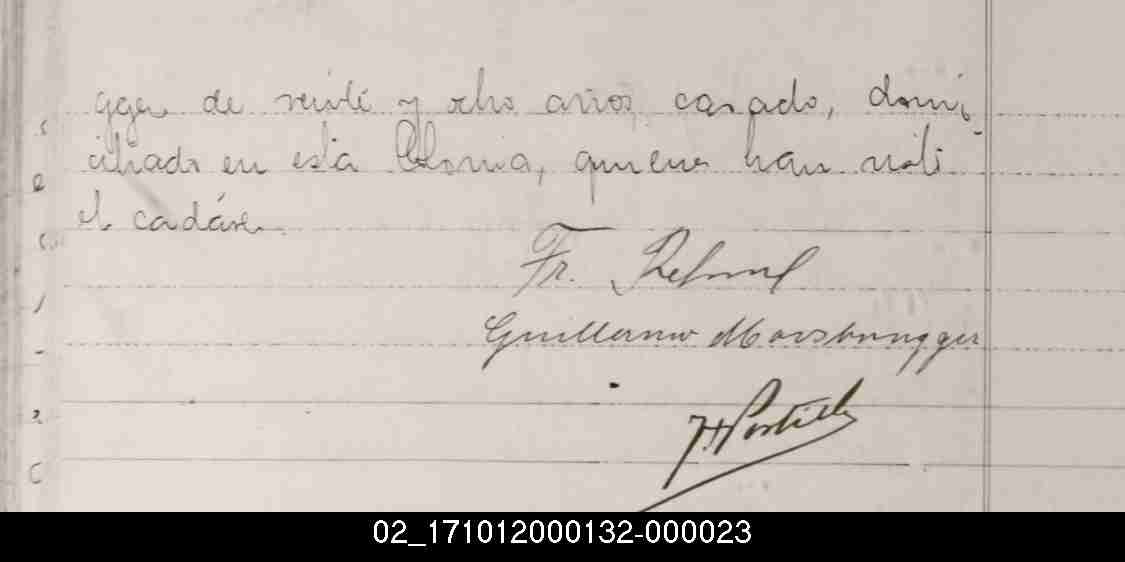 gger de veinte y ocho años, casado, domi-
ciliado en esta Colonia, quienes han visto
el cadáver.
Fr.
Guillermo Moosbrugger
02_171012000132-000023